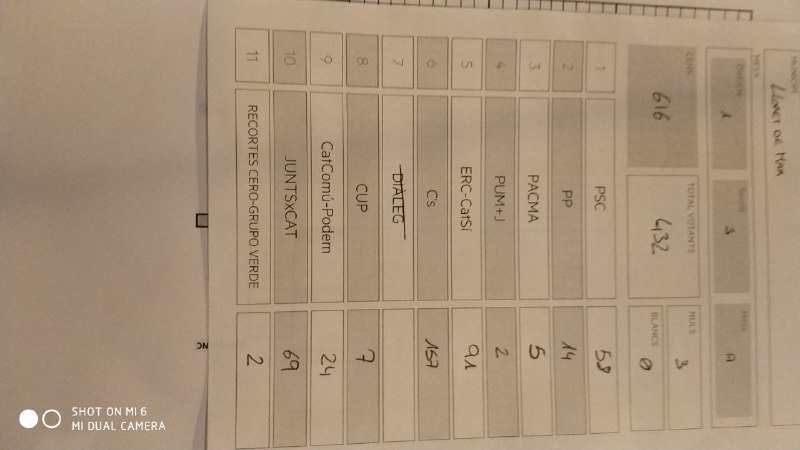 MUNICIPI
LLORET DE MAR
MESA
Districte Secció Mesa
1 3 A
CENS TOTAL VOTANTS NULS
616 432 3
BLANCS
0
1 PSC 58
2 PP 14
3 PACMA 5
4 PUM+J 2
5 ERC-CatSí 91
6 C's 157
7 DIÀLEG
8 CUP 7
9 CatComú-Podem 24
10 JUNTSxCAT 69
11 RECORTES CERO-GRUPO VERDE 2
SHOT ON MI 6
MI DUAL CAMERA